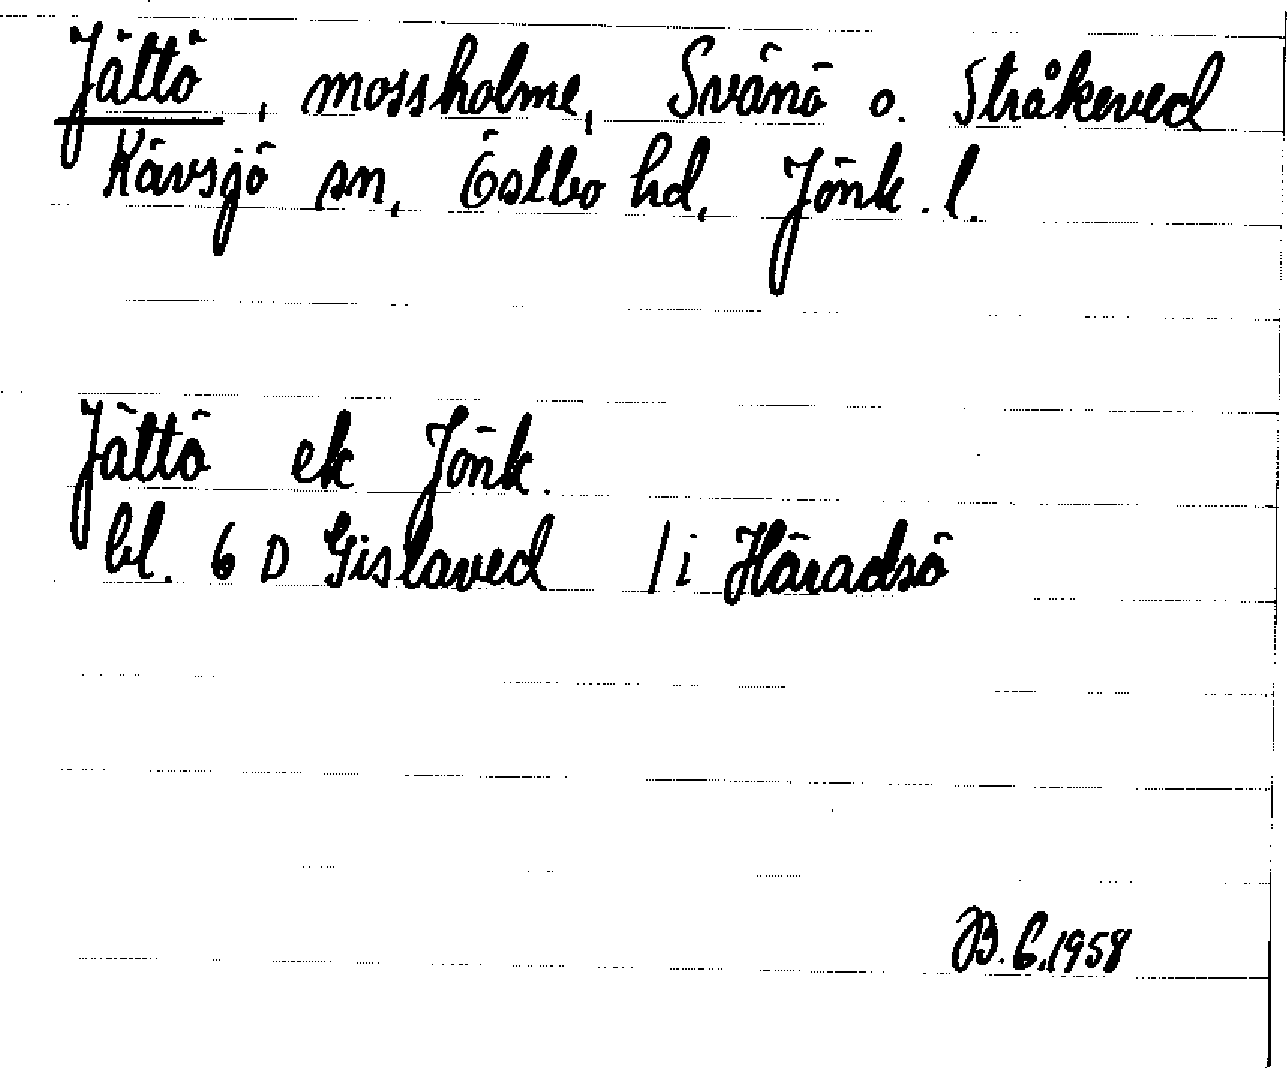 Jättö, mossholme, Svänö o. Stråkeved
Kävsjö sn, Östbo hd, Jönk. l.
Jättö ek Jönk.
bl. 6 D Gislaved 1i Häradsö
B.G.1958